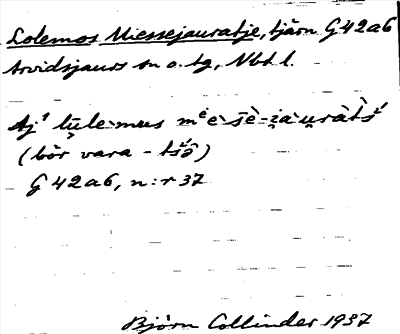 Lolemos Miessejauratje, tjärn G42a6
Arvidsjaurs sn o. tg, Nbt l.
Aj¹ lu̬̅le·mus mᵉè·s̄è-i̬a·u̬ràtš́
(bör vara - tš́ə̂)
G 42a6, n:r 37
Björn Collinder 1937